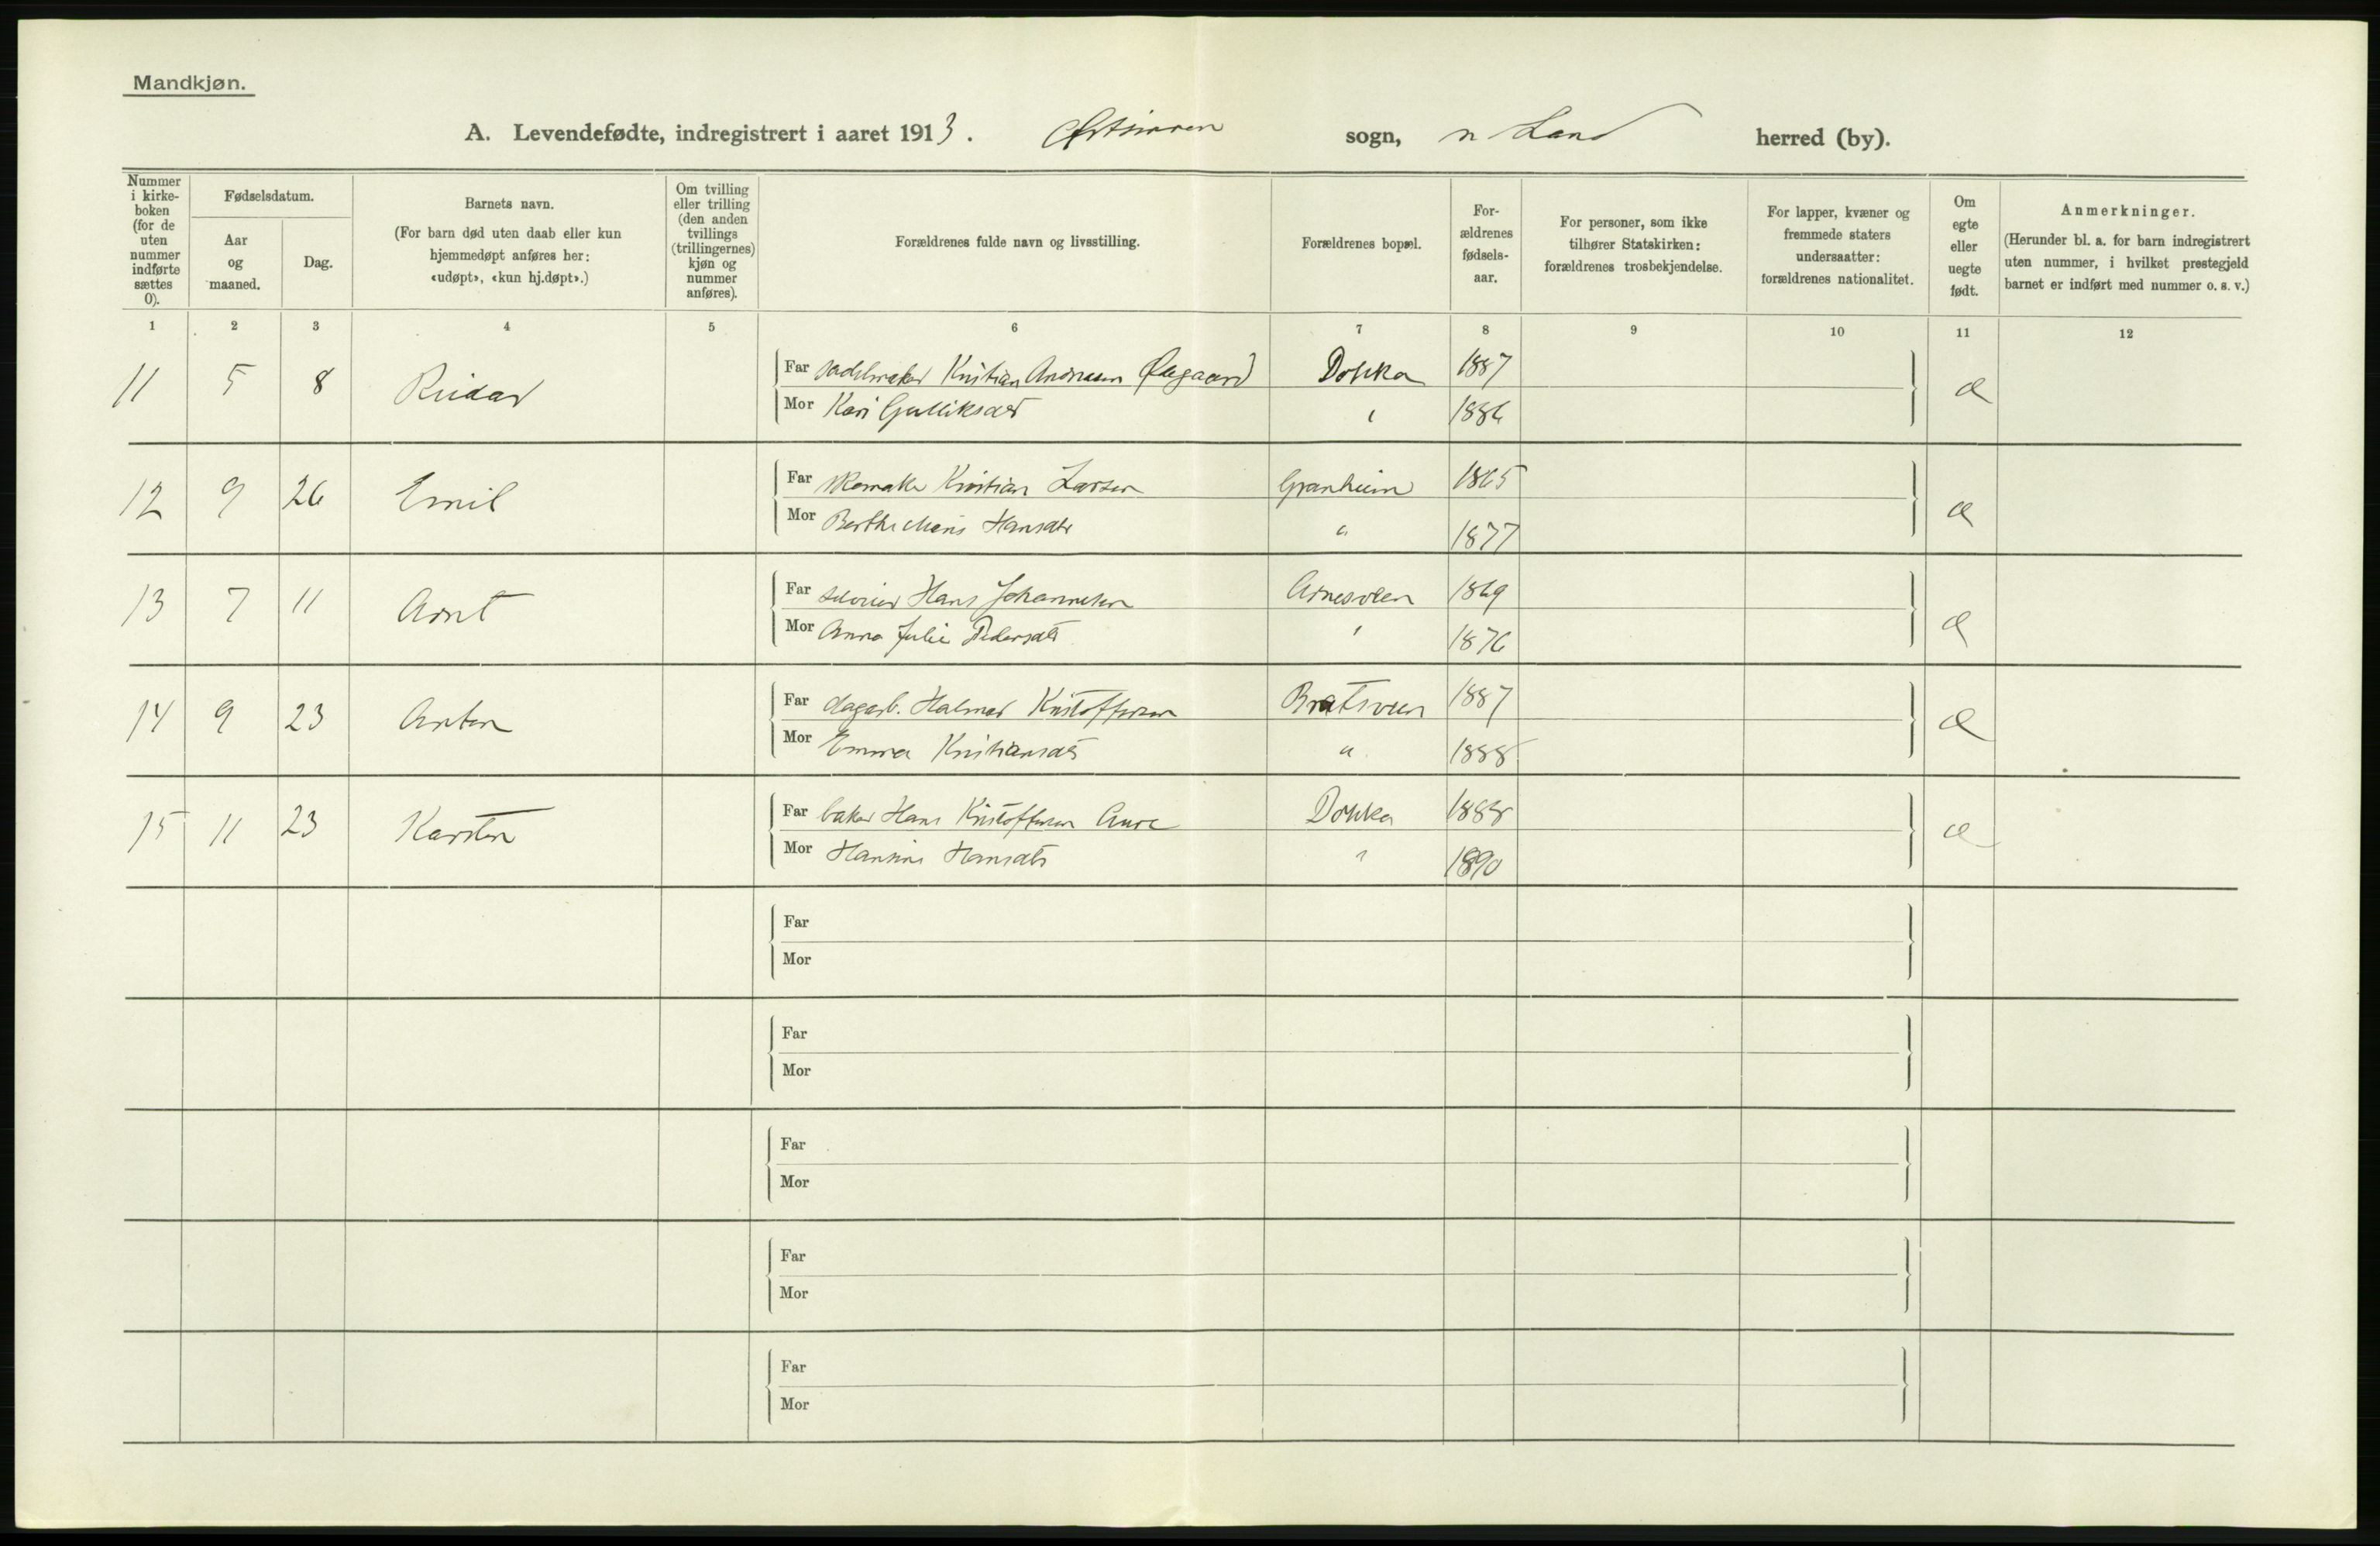 Mandkjøn.
A. Levendefødte, indregistrert i aaret 1913. Østsinnen sogn, n Land herred (by).
Nummer i kirke-boken (for de uten nummer indførte sættes 0).
Fødselsdatum.
Aar og maaned.
Dag.
Barnets navn.
(For barn død uten daab eller kun hjemmedøpt anføres her: «udøpt», «kun hj.døpt».)
Om tvilling eller trilling (den anden tvillings (trillingernes) kjøn og nummer anføres).
Forældrenes fulde navn og livsstilling.
Forældrenes bopæl.
For-ældrenes fødsels-aar.
For personer, som ikke tilhører Statskirken: forældrenes trosbekjendelse.
For lapper, kvæner og fremmede staters undersaatter: forældrenes nationalitet.
Om egte eller uegte født.
Anmerkninger.
(Herunder bl. a. for barn indregistrert uten nummer, i hvilket prestegjeld barnet er indført med nummer o. s. v.)
1 2 3 4 5 6 7 8 9 10 11 12
11 5 8 Reidar Far sadelmaker Kristian Andreasen Øegaard Dokka 1887 æ
Mor Kari Gulliksdtr " 1886
12 9 26 Emil Far skomaker Kristian Larsen Granheim 1865 æ
Mor Berthe Marie Hansdtr " 1877
13 7 11 Arnt Far Hans Johannesen Arnesveen 1869 æ
Mor Anna Julie Pedersdtr " 1876
14 9 23 Anton Far dagarb. Halmar Kristoffersen Bratsveen 1887 æ
Mor Emma Kristiansdtr " 1888
15 11 23 Karsten Far baker Hans Kristoffersen Dokka 1888 æ
Mor Hansine Hansdtr " 1890
Far
Mor
Far
Mor
Far
Mor
Far
Mor
Far
Mor